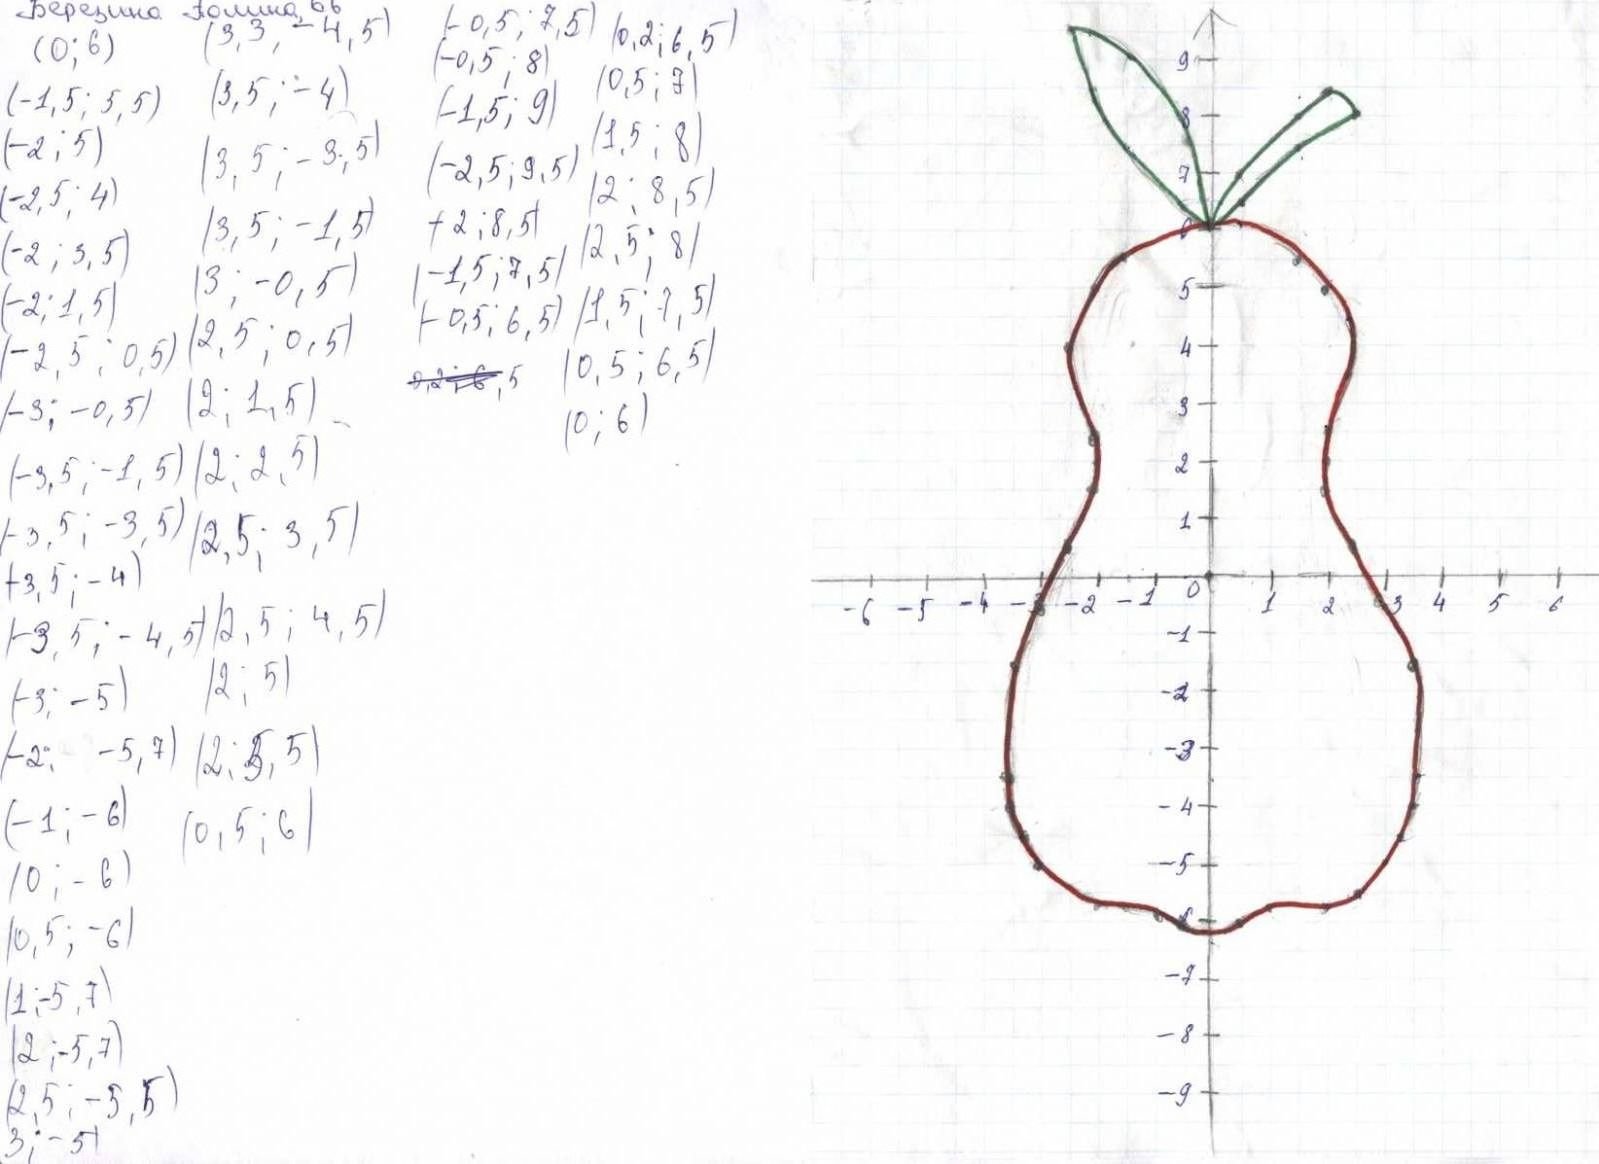 Березина Полина 6б
(0; 6)
(-1,5; 5,5)
(-2; 5)
(-2,5; 4)
(-2; 3,5)
(-2; 1,5)
(-2,5; 0,5)
(-3; -0,5)
(-3,5; -1,5)
(-3,5; -3,5)
(-3,5; -4)
(-3,5; -4,5)
(-3; -5)
(-2; -5,7)
(-1; -6)
(0; -6)
(0,5; -6)
(1; -5,7)
(2; -5,7)
(2,5; -5,5)
3; -5)
(3,3; -4,5)
(3,5; -4)
(3,5; -3,5)
(3,5; -1,5)
(3; -0,5)
(2,5; 0,5)
(2; 1,5)
(2; 2,5)
(2,5; 3,5)
(2,5; 4,5)
(2; 5)
(2; 5,5)
(0,5; 6)
(-0,5; 7,5)
(-0,5; 8)
(-1,5; 9)
(-2,5; 9,5)
(-2; 8,5)
(-1,5; 7,5)
(-0,5; 6,5)
0,2; 6,5
(0,2; 6,5)
(0,5; 7)
(1,5; 8)
(2; 8,5)
(2,5; 8)
(1,5; 7,5)
(0,5; 6,5)
(0; 6)
9
8
7
6
5
4
3
2
1
-6 -5 -4 -3 -2 -1 0 1 2 3 4 5 6
-1
-2
-3
-4
-5
-6
-7
-8
-9